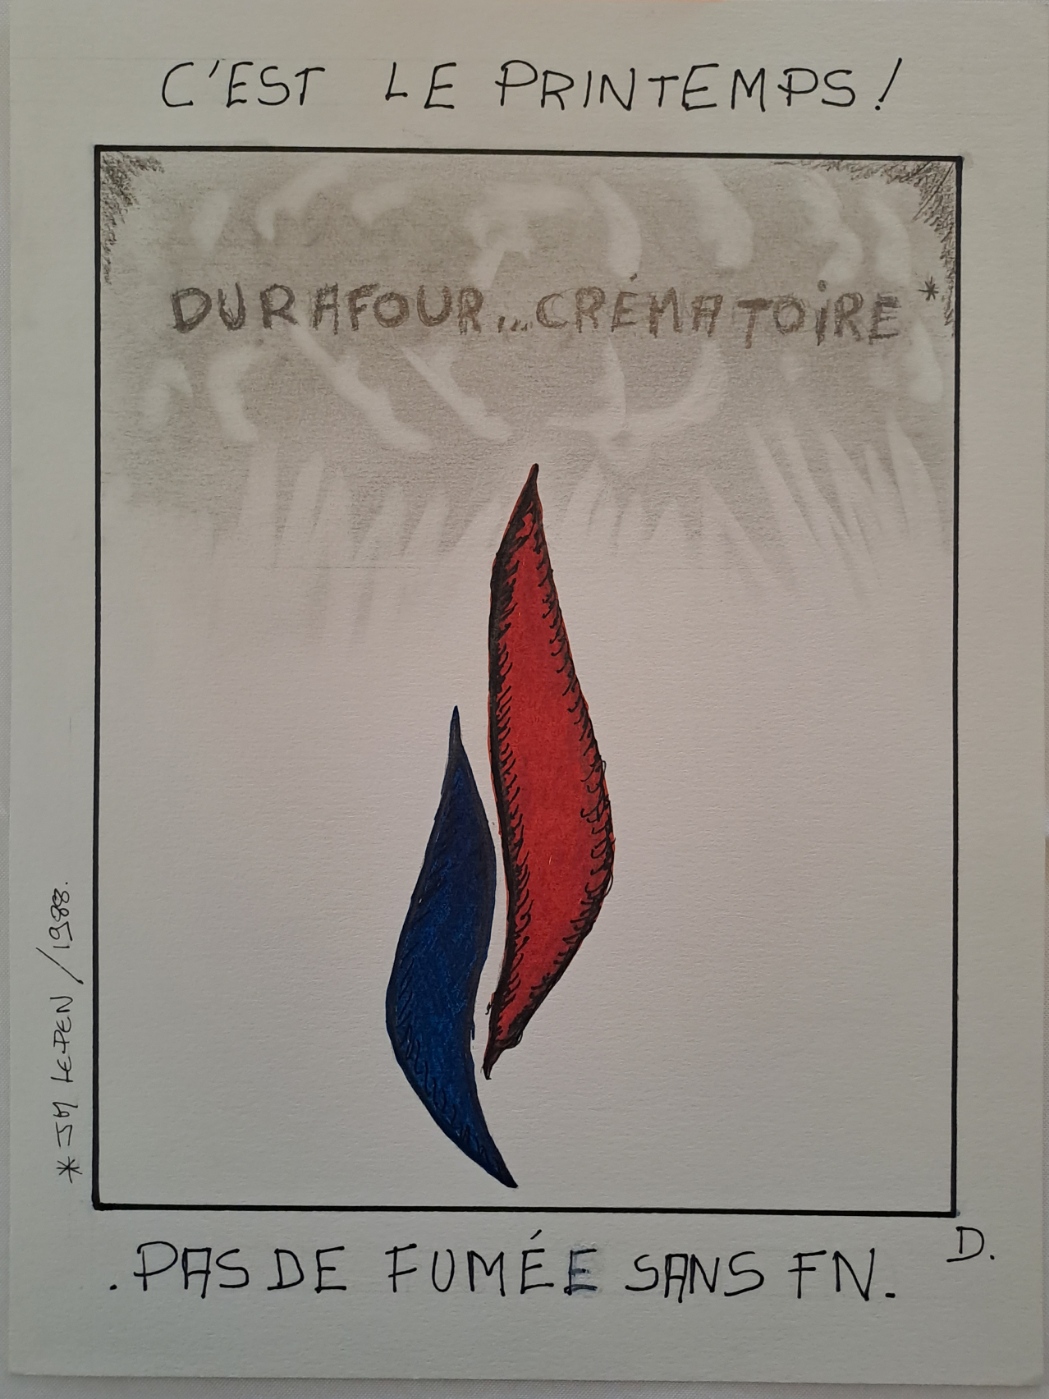 C'EST LE PRINTEMPS!
DURAFOUR... CRÉMATOIRE*
* JM LE PEN / 1988.
D.
. PAS DE FUMÉE SANS FN.